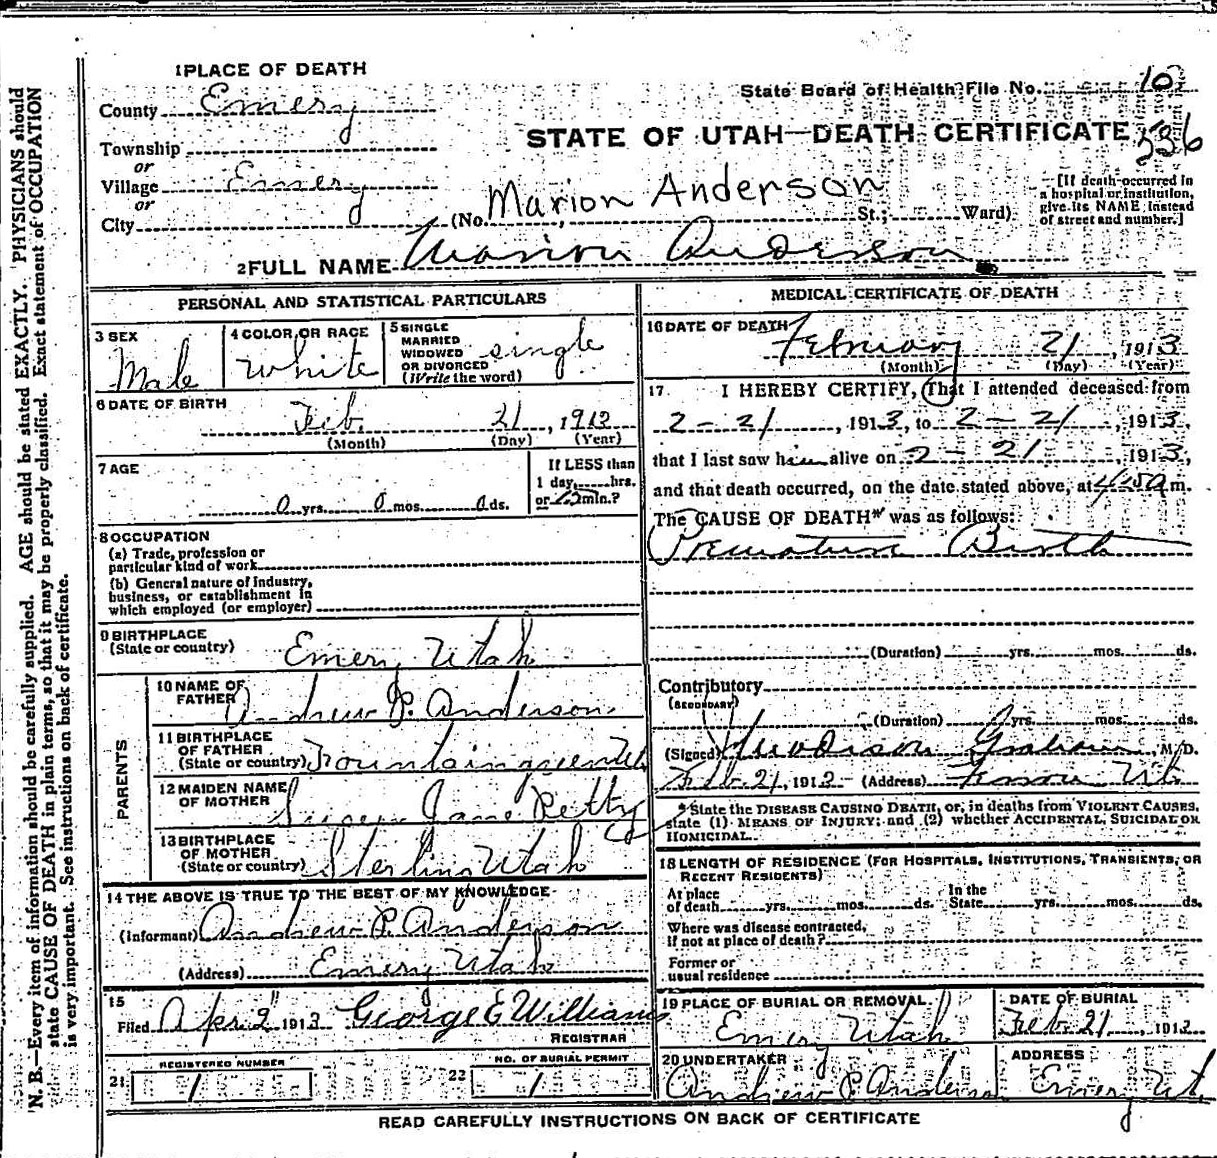 1 PLACE OF DEATH
State Board of Health File No. 10
County Emery
STATE OF UTAH—DEATH CERTIFICATE 536
Township
or
Village Emery
or
City (No. Marion Anderson St.; Ward)
[If death occurred in
a hospital or institution,
give its NAME instead
of street and number.]
2 FULL NAME Marion Anderson
PERSONAL AND STATISTICAL PARTICULARS
3 SEX
Male
4 COLOR OR RACE
White
5 SINGLE
MARRIED
WIDOWED
OR DIVORCED
(Write the word)
single
6 DATE OF BIRTH
Feb. 21, 1913
(Month) (Day) (Year)
7 AGE
0 yrs. 0 mos. 0 ds.
If LESS than
1 day, hrs.
or min.?
8 OCCUPATION
(a) Trade, profession or
particular kind of work
(b) General nature of industry,
business, or establishment in
which employed (or employer)
9 BIRTHPLACE
(State or country)
Emery Utah
PARENTS
10 NAME OF
FATHER
Andrew P. Anderson
11 BIRTHPLACE
OF FATHER
(State or country)
12 MAIDEN NAME
OF MOTHER
Jane Petty
13 BIRTHPLACE
OF MOTHER
(State or country)
Sterling Utah
14 THE ABOVE IS TRUE TO THE BEST OF MY KNOWLEDGE
(Informant) Andrew P. Anderson
(Address) Emery Utah
15
Filed Apr 2 1913 George E Williams
REGISTRAR
REGISTERED NUMBER
21 1
NO. OF BURIAL PERMIT
22 1
MEDICAL CERTIFICATE OF DEATH
16 DATE OF DEATH
February 21, 1913
(Month) (Day) (Year)
17. I HEREBY CERTIFY, That I attended deceased from
2-21, 1913, to 2-21, 1913,
that I last saw him alive on 2-21, 1913,
and that death occurred, on the date stated above, at m.
The CAUSE OF DEATH* was as follows:
Premature Birth
(Duration) yrs. mos. ds.
Contributory
(SECONDARY)
(Duration) yrs. mos. ds.
(Signed) Graham, M.D.
Feb 21, 1913 (Address) Ferron Ut
*State the DISEASE CAUSING DEATH, or, in deaths from VIOLENT CAUSES,
state (1) MEANS OF INJURY; and (2) whether ACCIDENTAL, SUICIDAL OR
HOMICIDAL.
18 LENGTH OF RESIDENCE (FOR HOSPITALS, INSTITUTIONS, TRANSIENTS, OR
RECENT RESIDENTS)
At place
of death yrs. mos. ds.
In the
State yrs. mos. ds.
Where was disease contracted,
if not at place of death?
Former or
usual residence
19 PLACE OF BURIAL OR REMOVAL
Emery Utah
DATE OF BURIAL
Feb 21, 1913
20 UNDERTAKER
Andrew P. Anderson
ADDRESS
Emery Ut.
READ CAREFULLY INSTRUCTIONS ON BACK OF CERTIFICATE
N. B.—Every item of information should be carefully supplied. AGE should be stated EXACTLY. PHYSICIANS should
state CAUSE OF DEATH in plain terms, so that it may be properly classified. Exact statement of OCCUPATION
is very important. See instructions on back of certificate.